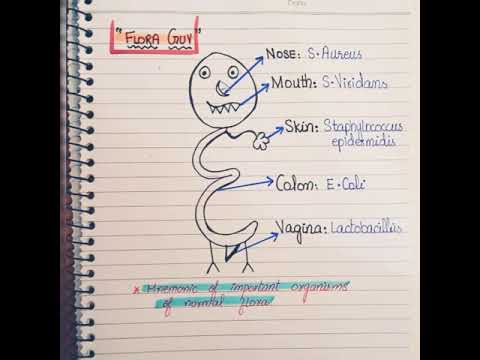 "FLORA GUY"
NOSE: S. Aureus
Mouth: S. Viridans
Skin: Staphylococcus
epidermidis
Colon: E. Coli
Vagina: Lactobacillus
* Mnemonic of important organisms
of normal flora